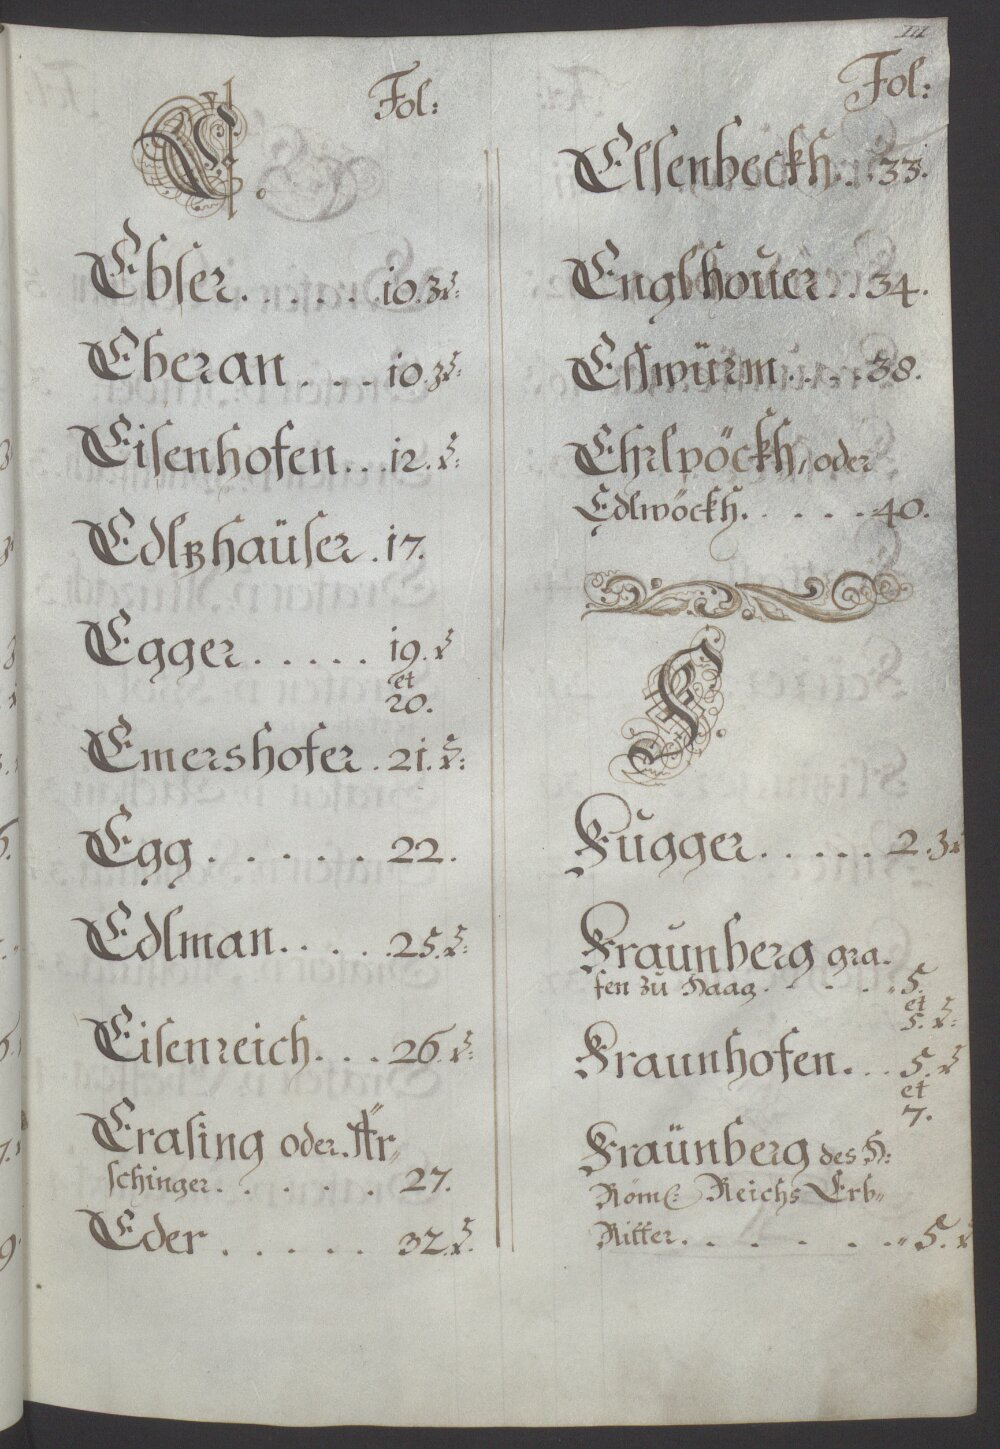 III
Fol:
E.
Ebser. . . . . . 10. 3x:
Eberan . . . . 10. 3x:
Eisenhofen. . . 12. x:
Edlzhaüser . 17.
Egger . . . . . 19. x
et
20.
Emershofer . 21. x:
Egg . . . . . . 22.
Edlman. . . . . 25. x:
Eisenreich. . . 26. x:
Erasing oder Ar„
schinger. . . . . . 27.
Eder . . . . . 32. x.
Fol:
Elsenbeckh. . . 33.
Englhouer. . . 34.
Esswürm . . . . 38.
Ehrlpöckh, oder
Edlwöckh. . . . . 40.
F.
Fugger. . . . . 2. 3x
Fraunberg gra.
fen zu Haag. . . . . „ 5.
et
5. x:
Fraunhofen. . . 5. x
et
7.
Fraünberg des H:
Röm: Reichs Erb„
Ritter. . . . . . „ 5. x